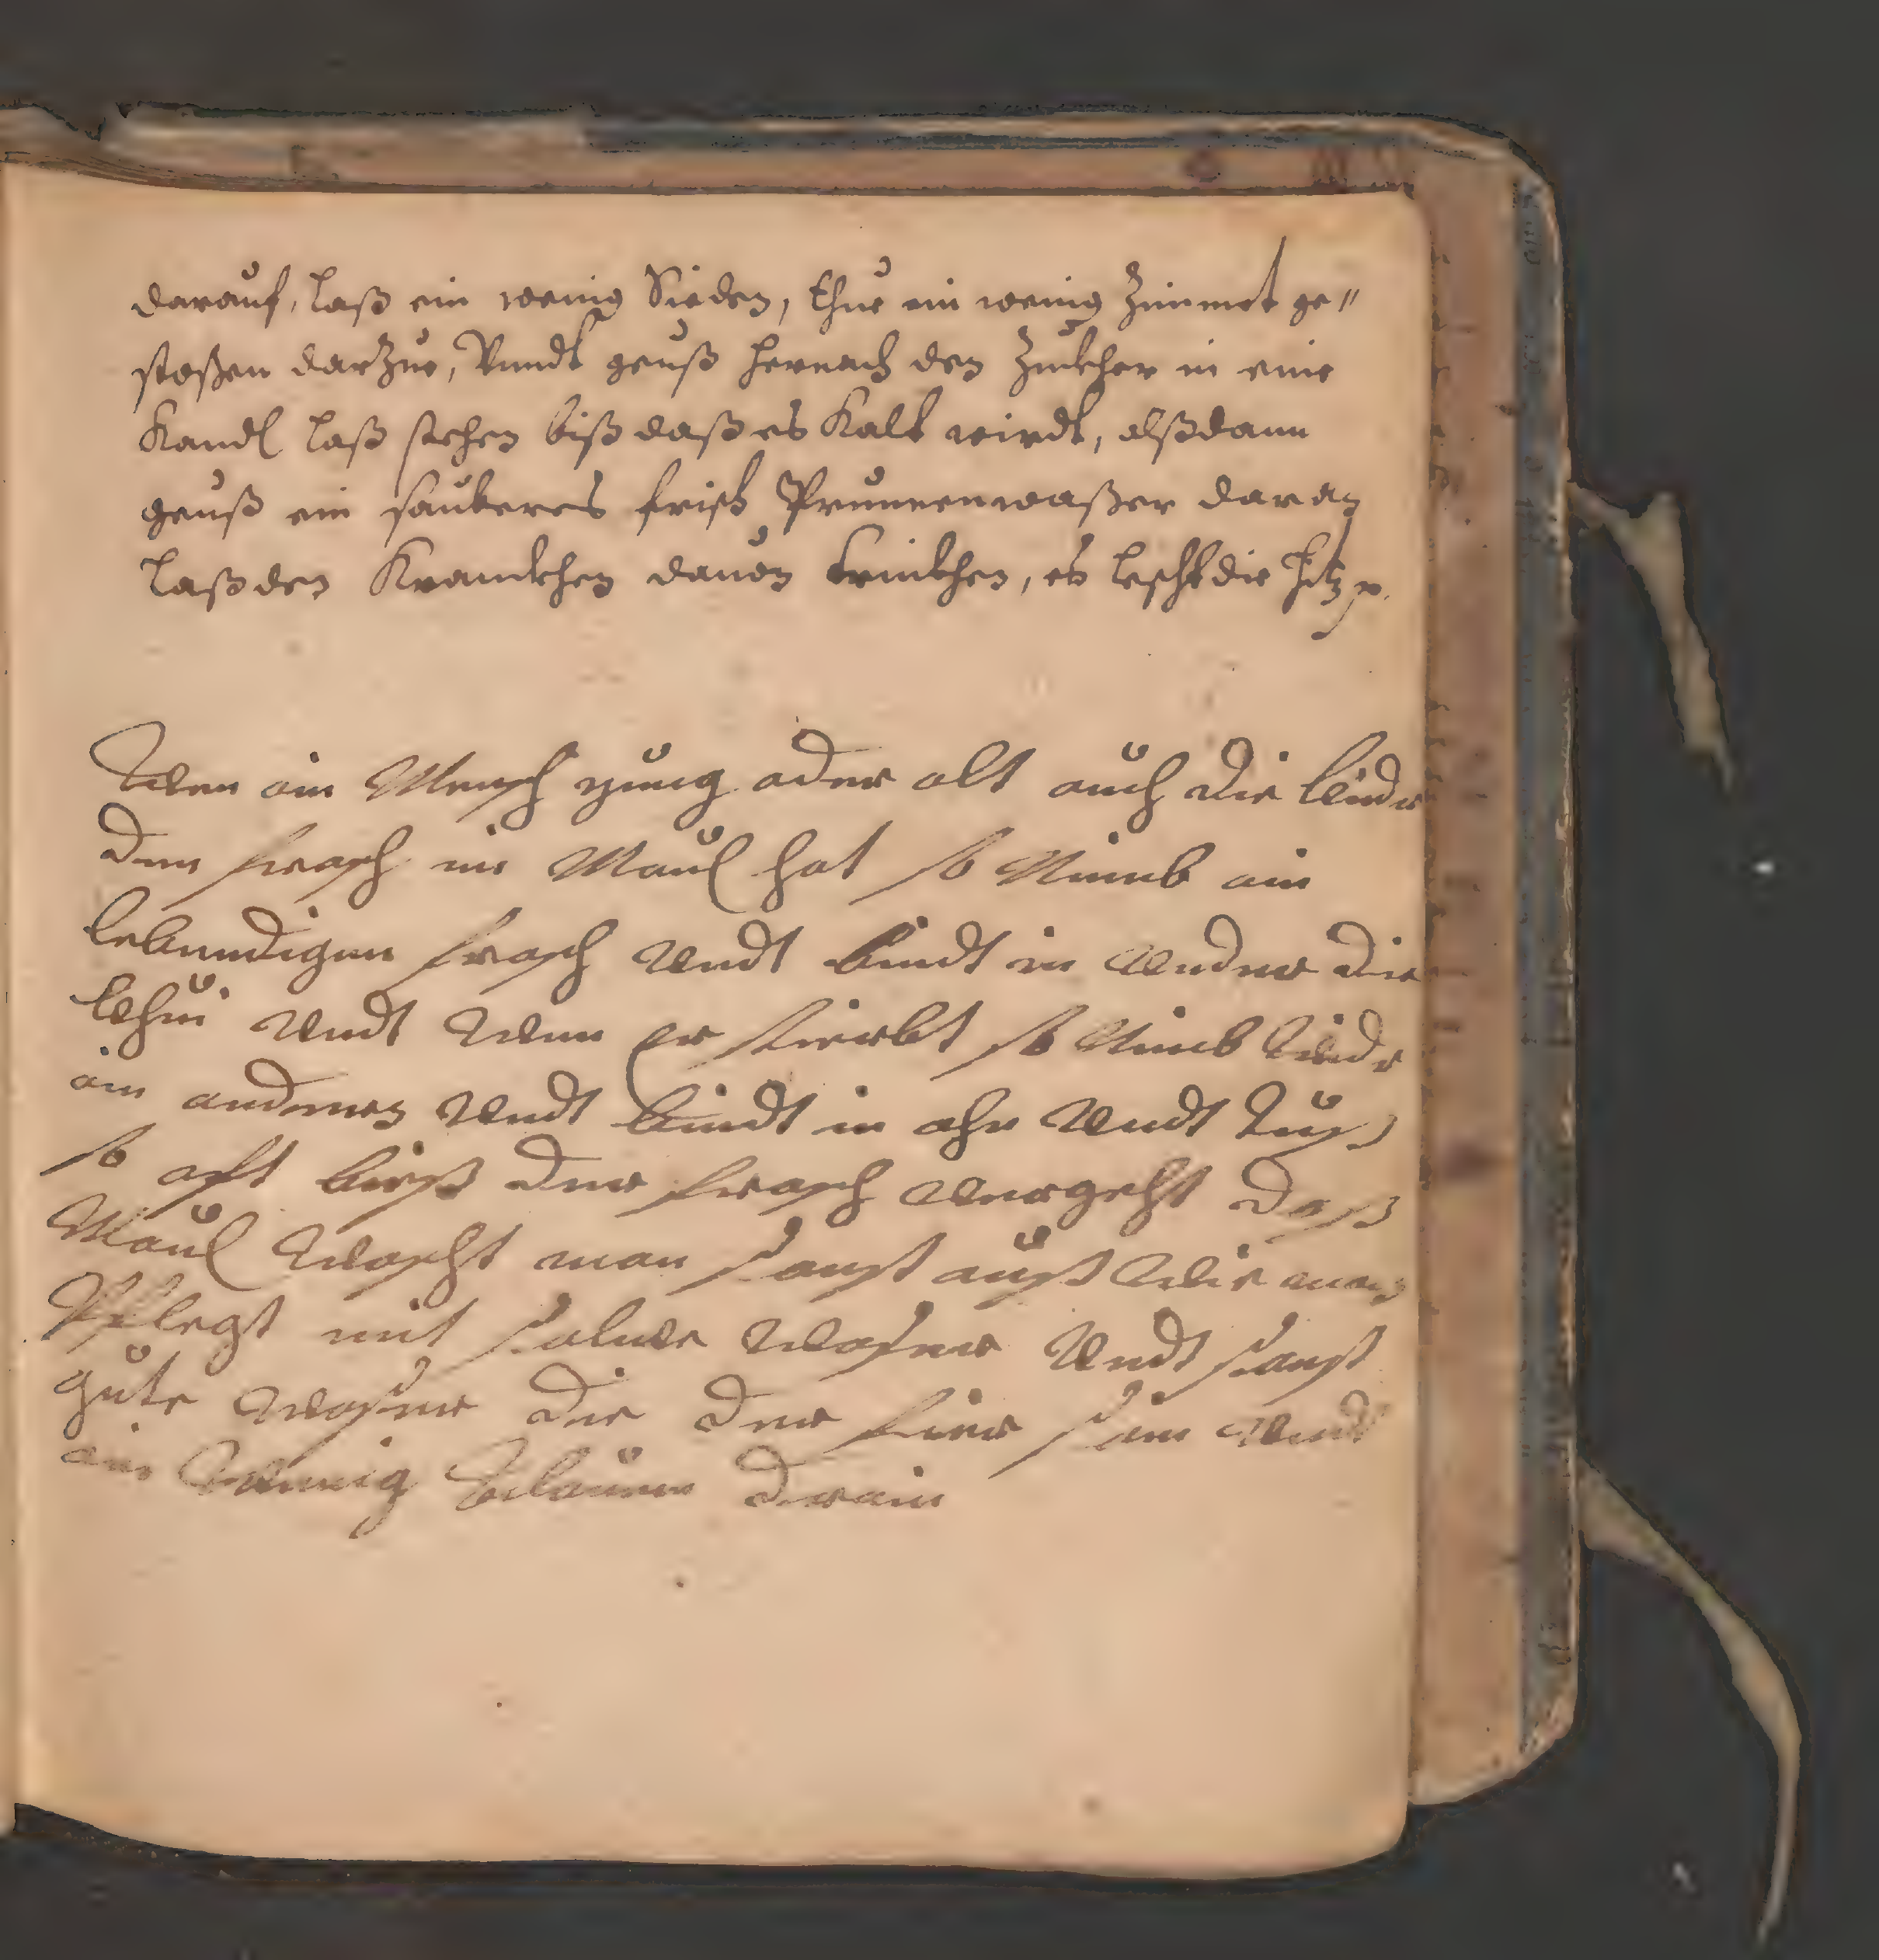 darauf, laß ein wenig Sieden, thue ein wenig Zimmet ge//
stoßen darZue, Vundt geuß hernach den Zuckher in eine
Kandl laß stehen biß daß es Kalt wirdt, alßdann
geuß ein sauberes frisch Prunnenwaßer daran
laß den Kranckhen dauon trinckhen, es lescht die Hitz p.
Wen ein Mensch yung oder alt auch die kinder
den frosch im Maul hat so Nimb ein
lebendigen frosch Undt bindt in Under die
Undt Wen er stierbt so Nimb Wider
ein anderen Undt bindt in ahn Undt tuß
so offt bieß der frosch Vergeht daß
Maul Wascht man sonst auß Wie man
Pflegt mit salue Waser Undt sonst
gute Waser die der fier sein Undt
ein Wenig drain